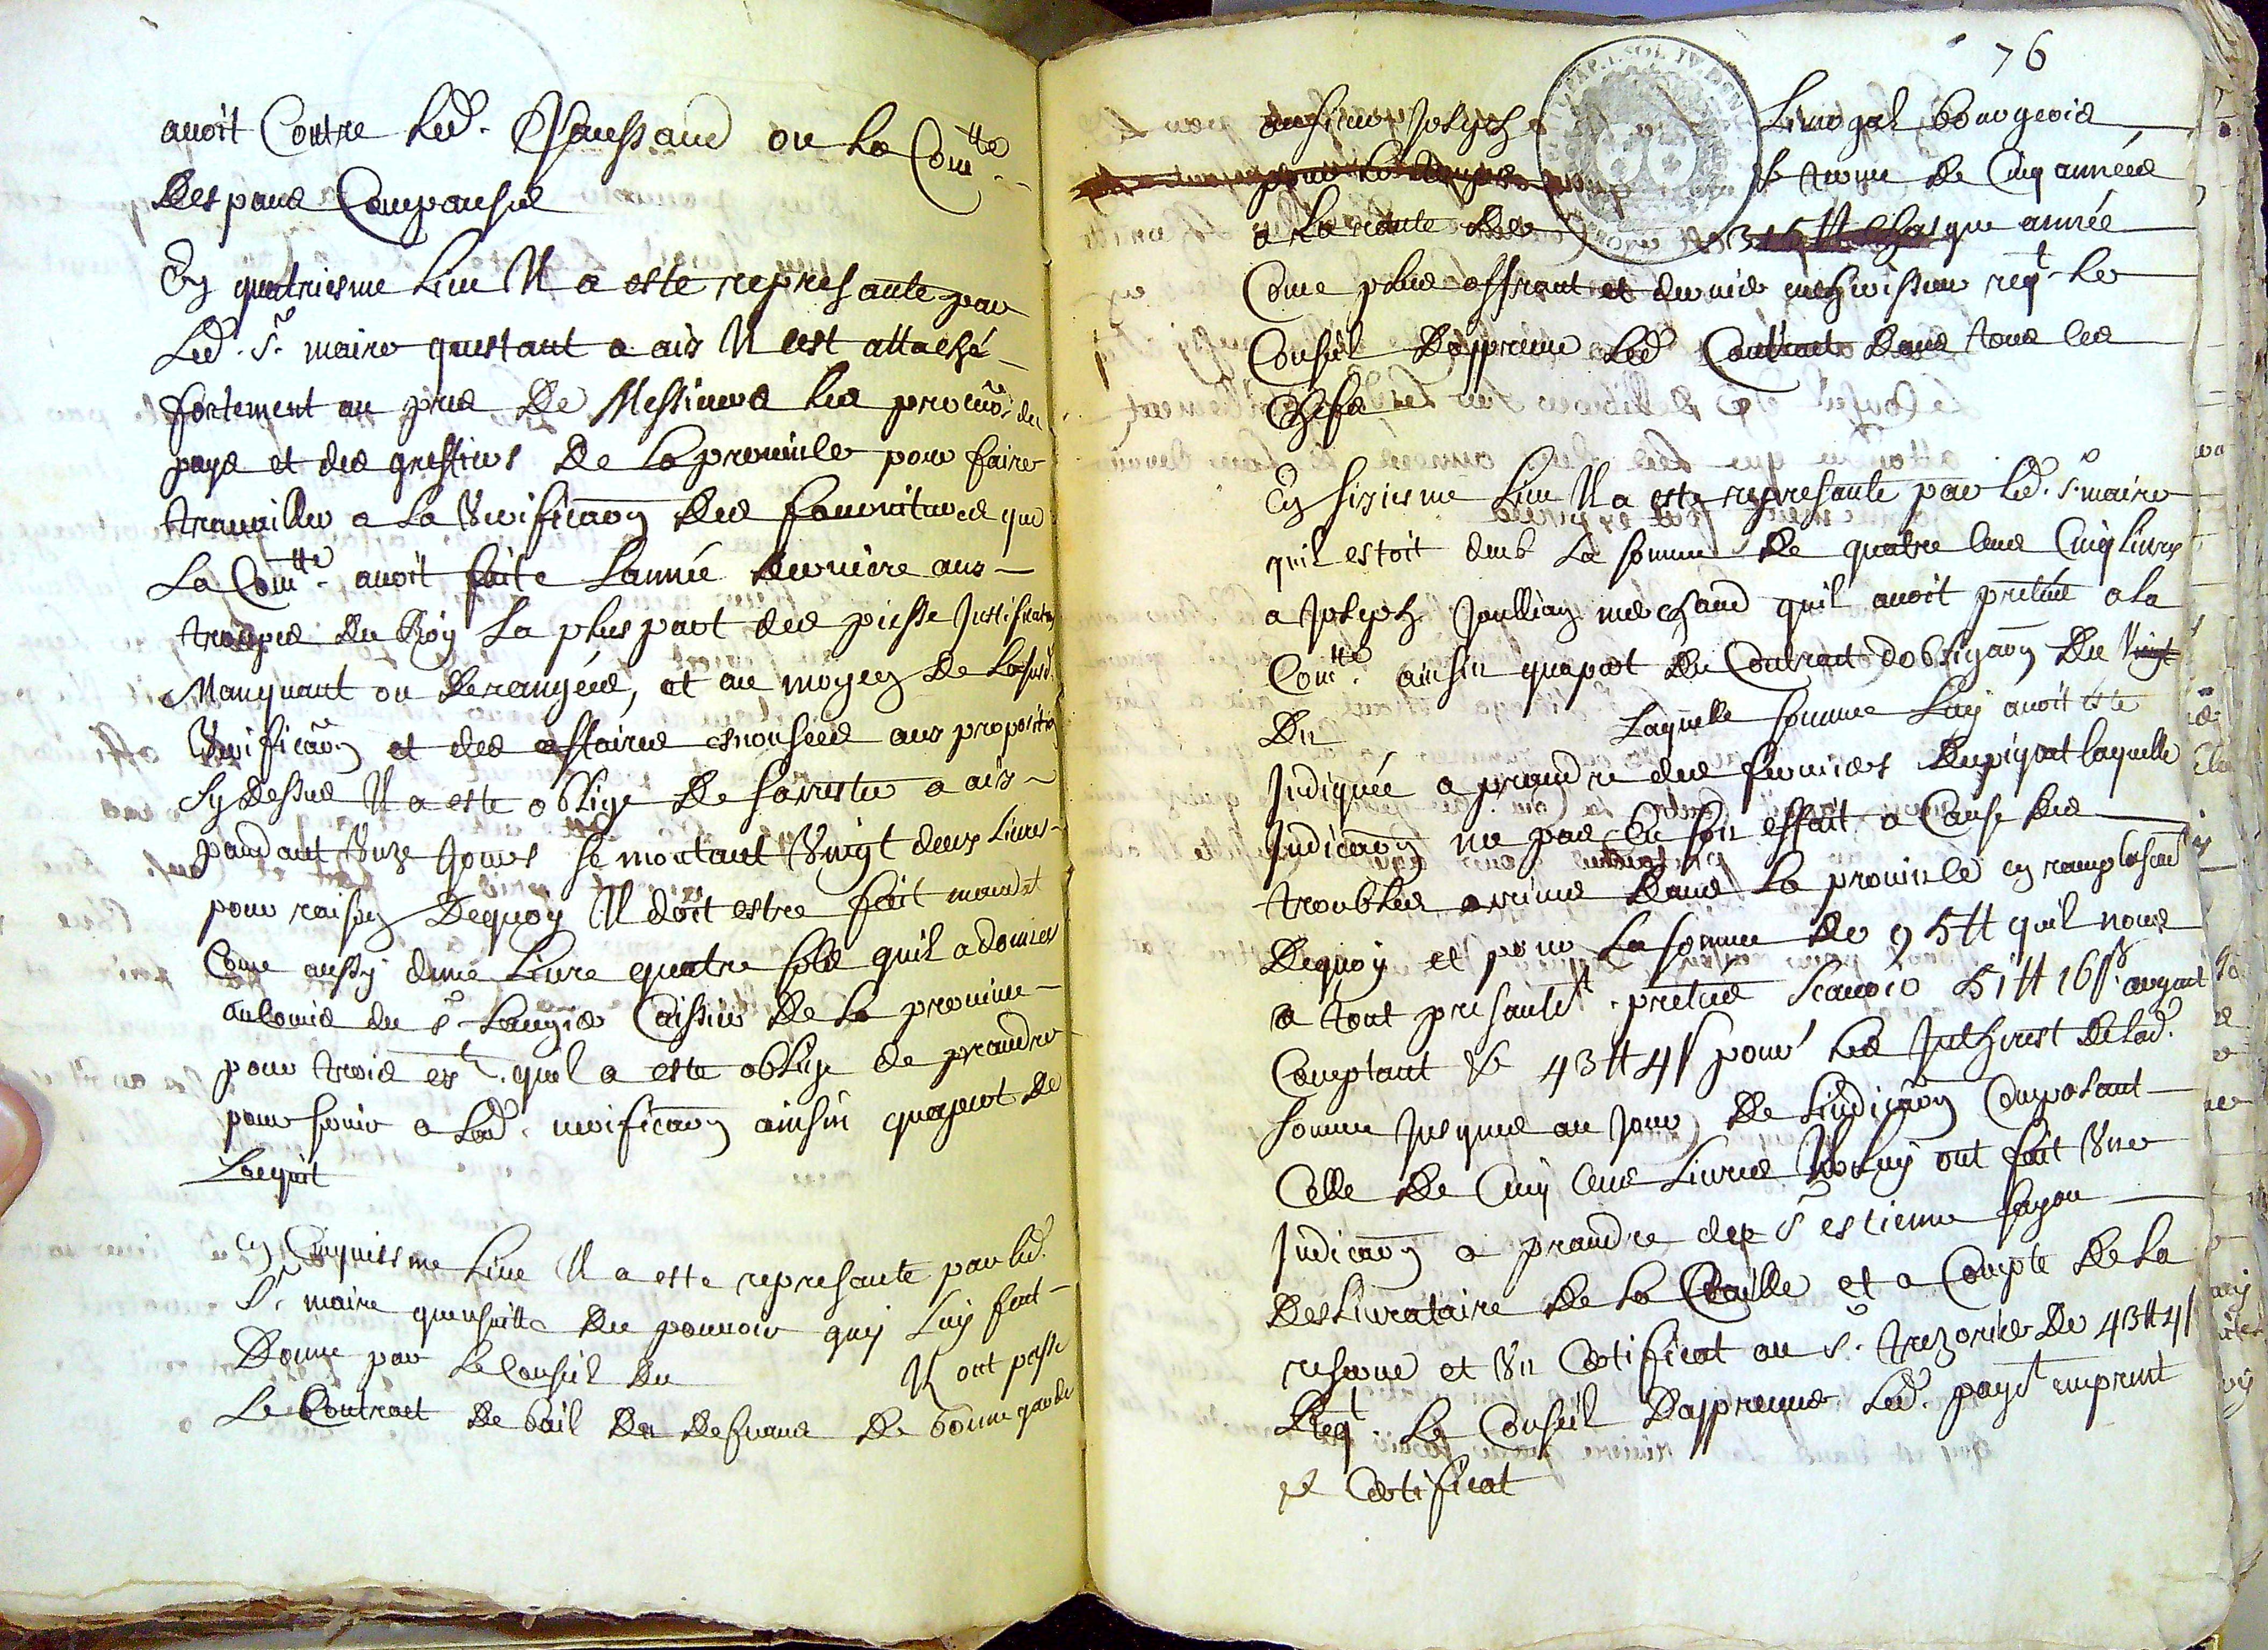 avoit Contre led. Chaussaud ou la Com.tte
des paus Compansid
En quatriesme Lieu Il a este represante par
Led. Sr. maire questant a aix Il cest attaché
fortement au pres de Messieurs les procurs du
pays et des greffiers de la province pour faire
travailler a la Veriffica͠on des fournitures que
La Com.tte avoit faite Lannée derniere aux
troupes du Roy La plus part des piesse Justificatives
Manquant ou derangées, et au moyen de la susd.
Veriffica͠on et des affaires enonsées aux propositio
sy dessus Il a este oblige de sarrester a aix
pandant Unze Jours se montant Vingt deux Livres
pour raison dequoy Il doit estre fait mandat
Come aussy dune Livre quatre sols quil a donnes
au Comis du Sr. Laugier Caissier de la province
pour trois ext. quil a este oblige de prandre
pour servir a lad. verifica͠on ainsin quapert de
Lacquit
En Cinquiesme Lieu Il a este represante par led.
Sr. maire quensuitte du pouvoir quy Luy fut
Donne par le Conseil du Il ont passe
Le Contract de bail du defrans de bonne garde
76
au sieur Joseph Limogal bourgeois
pour le temps & terme de Cinq années
a la rante de 315 ₶ Chasque année
Come plus offrant et dernier encherisseur reqt. le
Conseil Dapprouver led. Contract dans tous ses
Chefs
En sixiesme Lieu Il a este represante par led. Sr. maire
quil estoit deub la somme de quatre Cens Cinq Livres
a Joseph Jullian marchand quil avoit prettée a la
Com.tte ainsin quapert du Contract dobliga͠on du Vingt
Du Laquelle somme Luy avoit este
Indiquée a prandre des fermiers du piquet laquelle
Indica͠on na pas eu son effait a Cause des
troubles arrives dans la province en ramplasemt
Dequoy et pour la somme de 95 ₶ quil nous
a tout presantemt. prettés scavoir 51 ₶ 16 s. argent
Comptant & 43 ₶ 4 s pour les Intherest de lad.
somme Jusques au Jour de lindica͠on Composant
Celle de Cinq Cens Livres Ils Luy ont fait Une
Indica͠on a prandre de Sr estienne fayou
deslivrataire de la taille et a Compte de la
reserve et Un Certificat au Sr. trezorier de 43 ₶ 4 s
Reqt Le Conseil Dapprouver led. payet emprunt
& Certificat